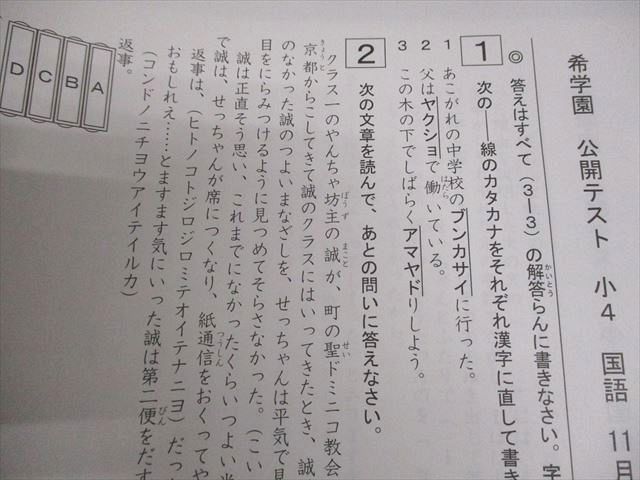 希学園 公開テスト 小4 国語 11月
◎ 答えはすべて(3―3)の解答らんに書きなさい。字
かいとう
1 次の――線のカタカナをそれぞれ漢字に直して書き
1 あこがれの中学校のブンカサイに行った。
2 父はヤクショで働いている。
はたら
3 この木の下でしばらくアマヤドりしよう。
2 次の文章を読んで、あとの問いに答えなさい。
クラス一のやんちゃ坊主の誠が、町の聖ドミニコ教会
ぼうず まこと せい
京都からこしてきて誠のクラスにはいってきたとき、誠
きょうと
のなかった誠のつよいまなざしを、せっちゃんは平気で見
目をにらみつけるように見つめてそらさなかった。(こい
誠は正直そう思い、これまでになかったくらいつよい
で誠は、せっちゃんが席につくなり、紙通信をおくってや
つうしん
返事は、(ヒトノコトジロジロミテオイテナニヨ)だっ
おもしれえ……とますます気にいった誠は第二便をだす
びん
(コンドノニチヨウアイテイルカ)
返事。
A
B
C
D